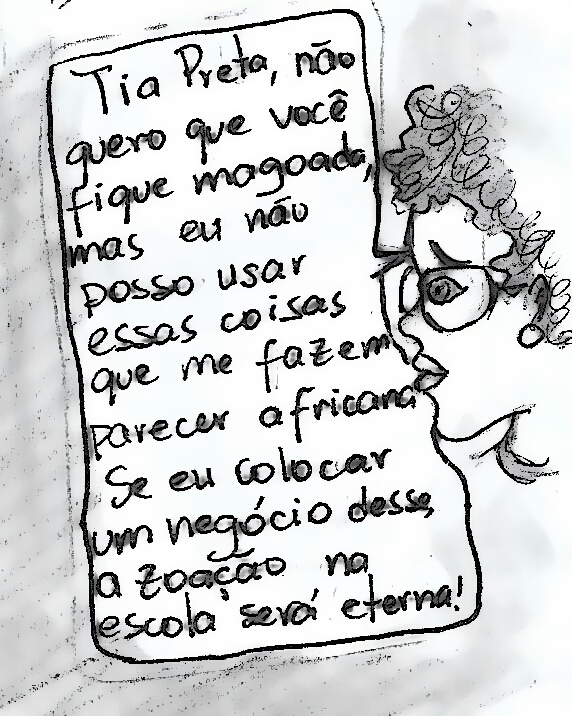 Tia Preta, não
quero que você
fique magoada,
mas eu não
posso usar
essas coisas
que me fazem
parecer africana
Se eu colocar
um negócio desse,
a zoação na
escola será eterna!